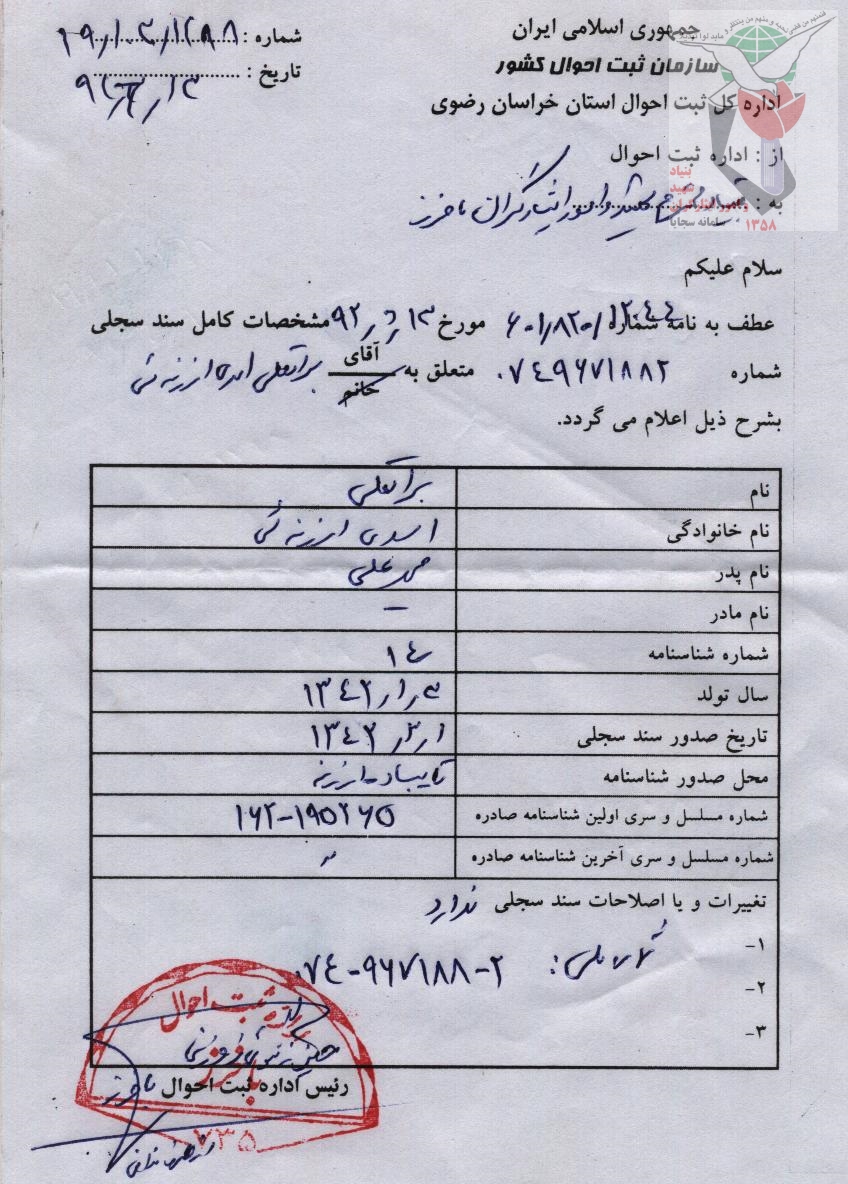 جمهوری اسلامی ایران
سازمان ثبت احوال کشور
اداره کل ثبت احوال استان خراسان رضوی
شماره : ۲۹/۳/۱۲۸۸
تاریخ : ۹۲/۳/۱۳
بنیاد
شهید
و امور ایثارگران
سامانه سجایا
۱۳۵۸
از : اداره ثبت احوال
به : بنیاد شهید و امور ایثارگران باخرز
سلام علیکم
عطف به نامه شماره ۶۰۱/۸۲۰/۱۲۰۴۴ مورخ ۹۲/۲/۱۳ مشخصات کامل سند سجلی
شماره ۰۷۴۹۶۷۱۸۸۲ متعلق به آقای خانم براتعلی اسدی ارزنه ئی
بشرح ذیل اعلام می گردد.
نام براتعلی
نام خانوادگی اسدی ارزنه ئی
نام پدر محمد علی
نام مادر –
شماره شناسنامه ۱۴
سال تولد ۱۳۴۲/۱/۳
تاریخ صدور سند سجلی ۱۳۴۲/۳/۱
محل صدور شناسنامه تایباد-ارزنه
شماره مسلسل و سری اولین شناسنامه صادره ۱۶۲-۱۹۵۲۶۵
شماره مسلسل و سری آخرین شناسنامه صادره
تغییرات و یا اصلاحات سند سجلی ندارد
۱-
ش ملی: ۰۷۴-۹۶۷۱۸۸-۲
۲-
۳-
اداره ثبت احوال
باخرز
رئیس اداره ثبت احوال باخرز
۷۳۵